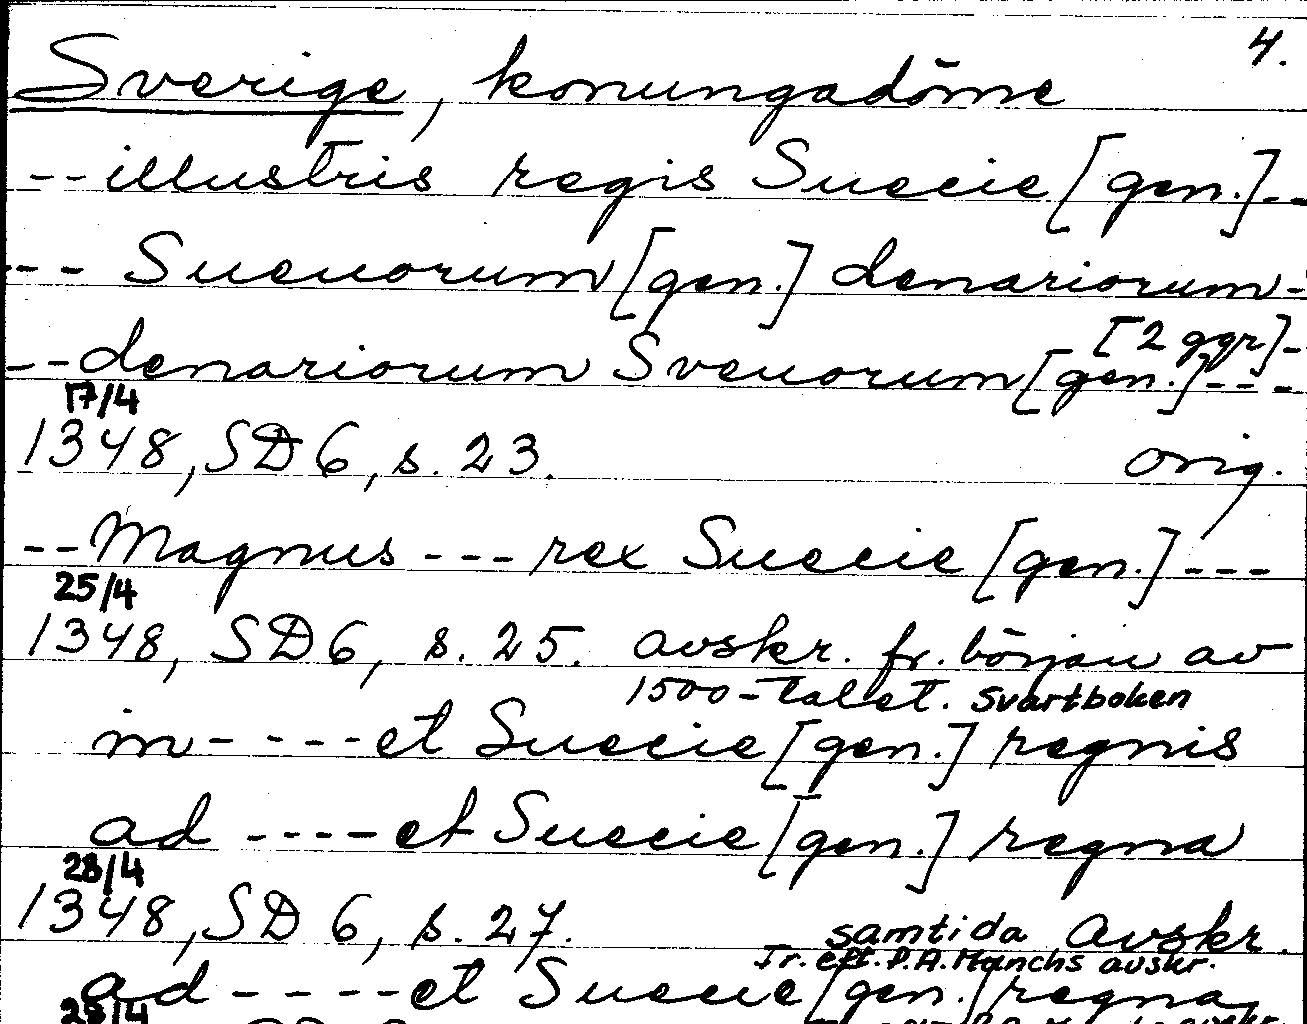 4.
Sverige, konungadöme
--illustris regis Suecie [gen.]--
--- Sueuorum [gen.] denariorum-
[2 ggr]-
--denariorum Sveuorum [gen.]---
17/4
1348, SD 6, s. 23. orig.
--Magnus --- rex Suecie [gen.]---
25/4
1348, SD 6, s. 25. avskr. fr. början av
1500-talet. Svartboken
in- ---et Suecie [gen.] regnis
ad ----et Suecie [gen.] regna
28/4
1348, SD 6, s. 27. samtida avskr.
Tr. eft. P.A. Munchs avskr.
ad ----et Suecie [gen.] regna
28/4